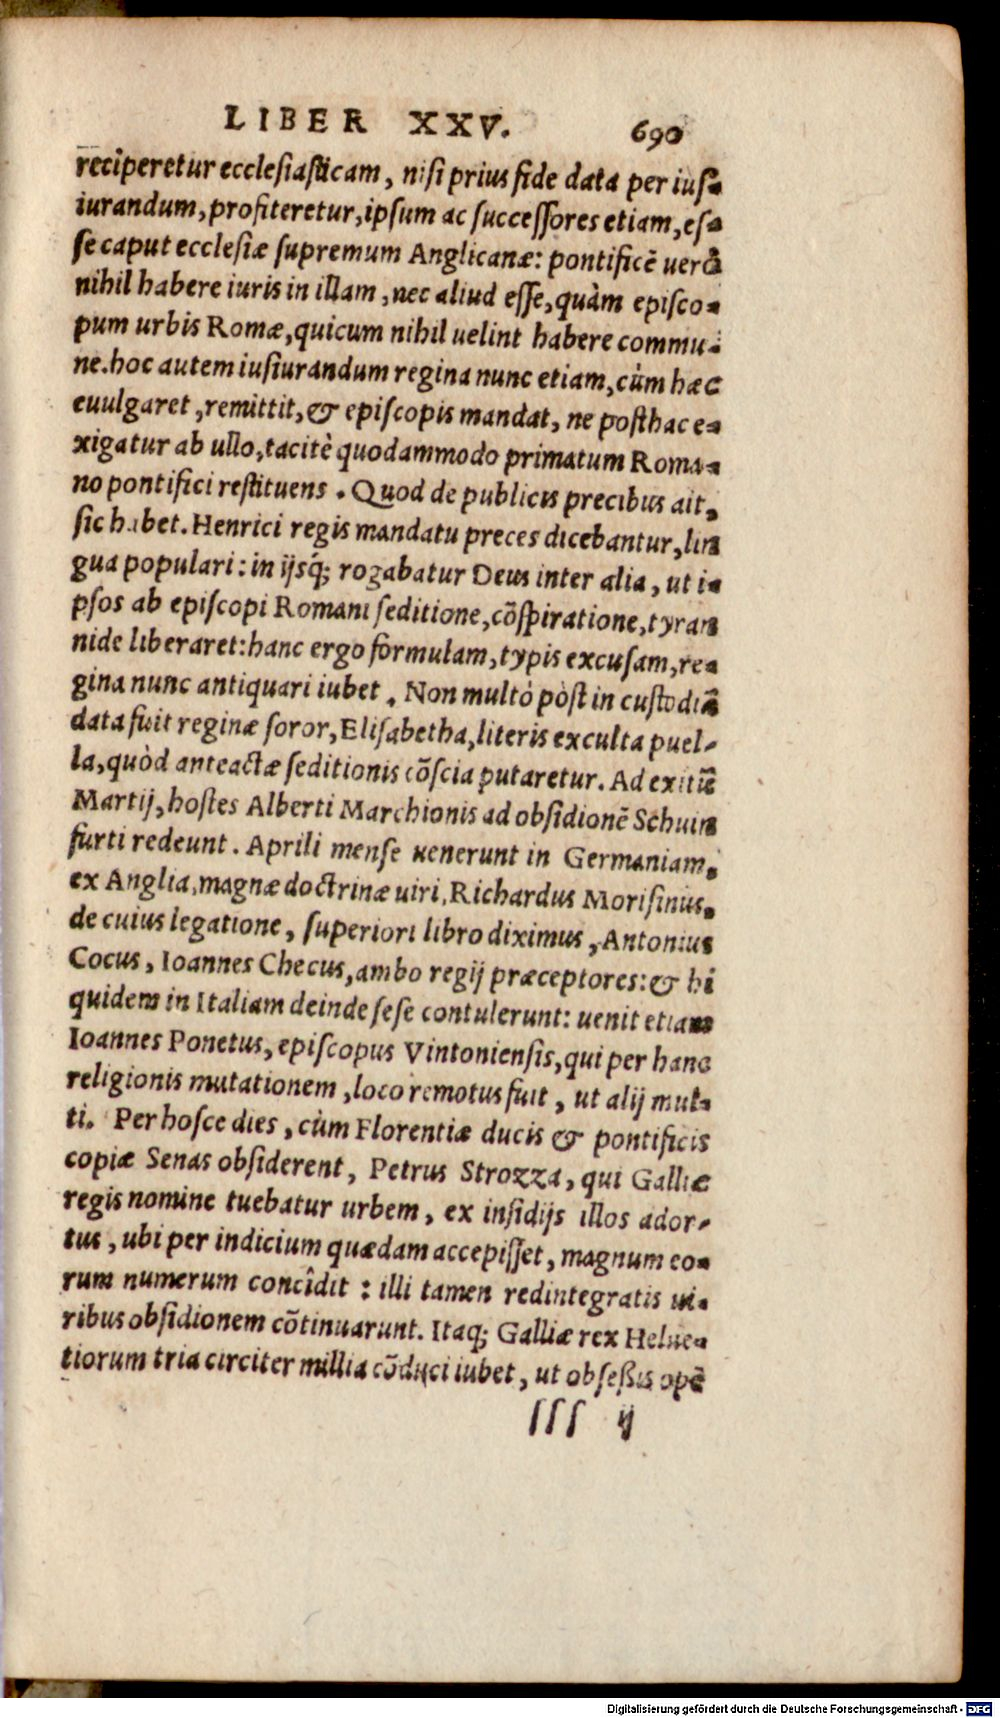 LIBER XXV. 690
reciperetur ecclesiasticam, nisi prius fide data per ius-
iurandum, profiteretur, ipsum ac successores etiam, es-
se caput ecclesiæ supremum Anglicanæ: pontificē uerò
nihil habere iuris in illam, nec aliud esse, quàm episco-
pum urbis Romæ, quicum nihil uelint habere commu-
ne. hoc autem iusiurandum regina nunc etiam, cùm hæc
euulgaret, remittit, & episcopis mandat, ne posthac e-
xigatur ab ullo, tacitè quodammodo primatum Roma-
no pontifici restituens. Quod de publicis precibus ait,
sic habet. Henrici regis mandatu preces dicebantur, lin
gua populari: in ijsq́; rogabatur Deus inter alia, ut i-
psos ab episcopi Romani seditione, cōspiratione, tyran
nide liberaret: hanc ergo formulam, typis excusam, re-
gina nunc antiquari iubet. Non multò pòst in custodiā
data fuit reginæ soror, Elisabetha, literis exculta puel-
la, quòd anteactæ seditionis cōscia putaretur. Ad exitū
Martij, hostes Alberti Marchionis ad obsidionē Schuin
furti redeunt. Aprili mense uenerunt in Germaniam,
ex Anglia, magnæ doctrinæ uiri, Richardus Morisinus,
de cuius legatione, superiori libro diximus, Antonius
Cocus, Ioannes Checus, ambo regij præceptores: & hi
quidem in Italiam deinde sese contulerunt: uenit etiam
Ioannes Ponetus, episcopus Vintoniensis, qui per hanc
religionis mutationem, loco remotus fuit, ut alij mul-
ti. Per hosce dies, cùm Florentiæ ducis & pontificis
copiæ Senas obsiderent, Petrus Strozza, qui Galliæ
regis nomine tuebatur urbem, ex insidijs illos ador-
tus, ubi per indicium quædam accepisset, magnum eo-
rum numerum concîdit: illi tamen redintegratis ui-
ribus obsidionem cōtinuarunt. Itaq; Galliæ rex Helue-
tiorum tria circiter millia cōduci iubet, ut obseßis opē
SSS ij
Digitalisierung gefördert durch die Deutsche Forschungsgemeinschaft - DFG